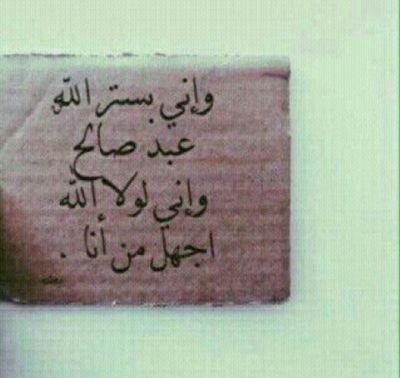 وإني بستر الله
عبد صالح
وإني لولا الله
اجهل من أنا .